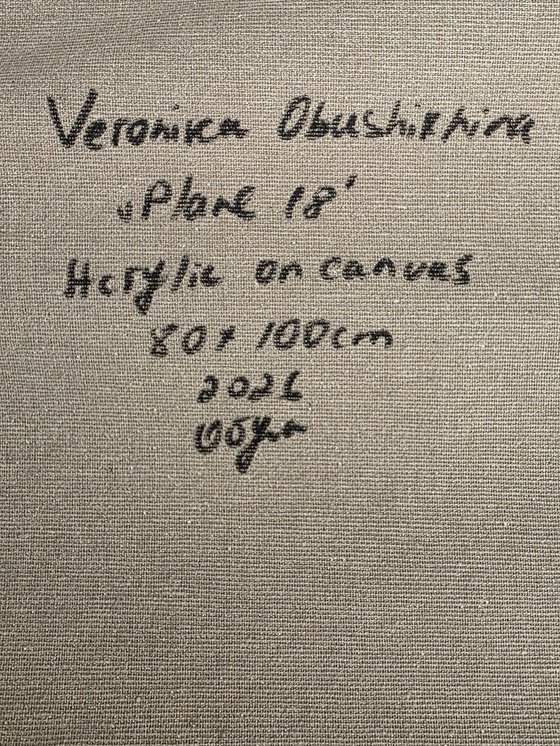 Veronika Obushikhina
"Plane 18"
Acrylic on canvas
80x100cm
2026